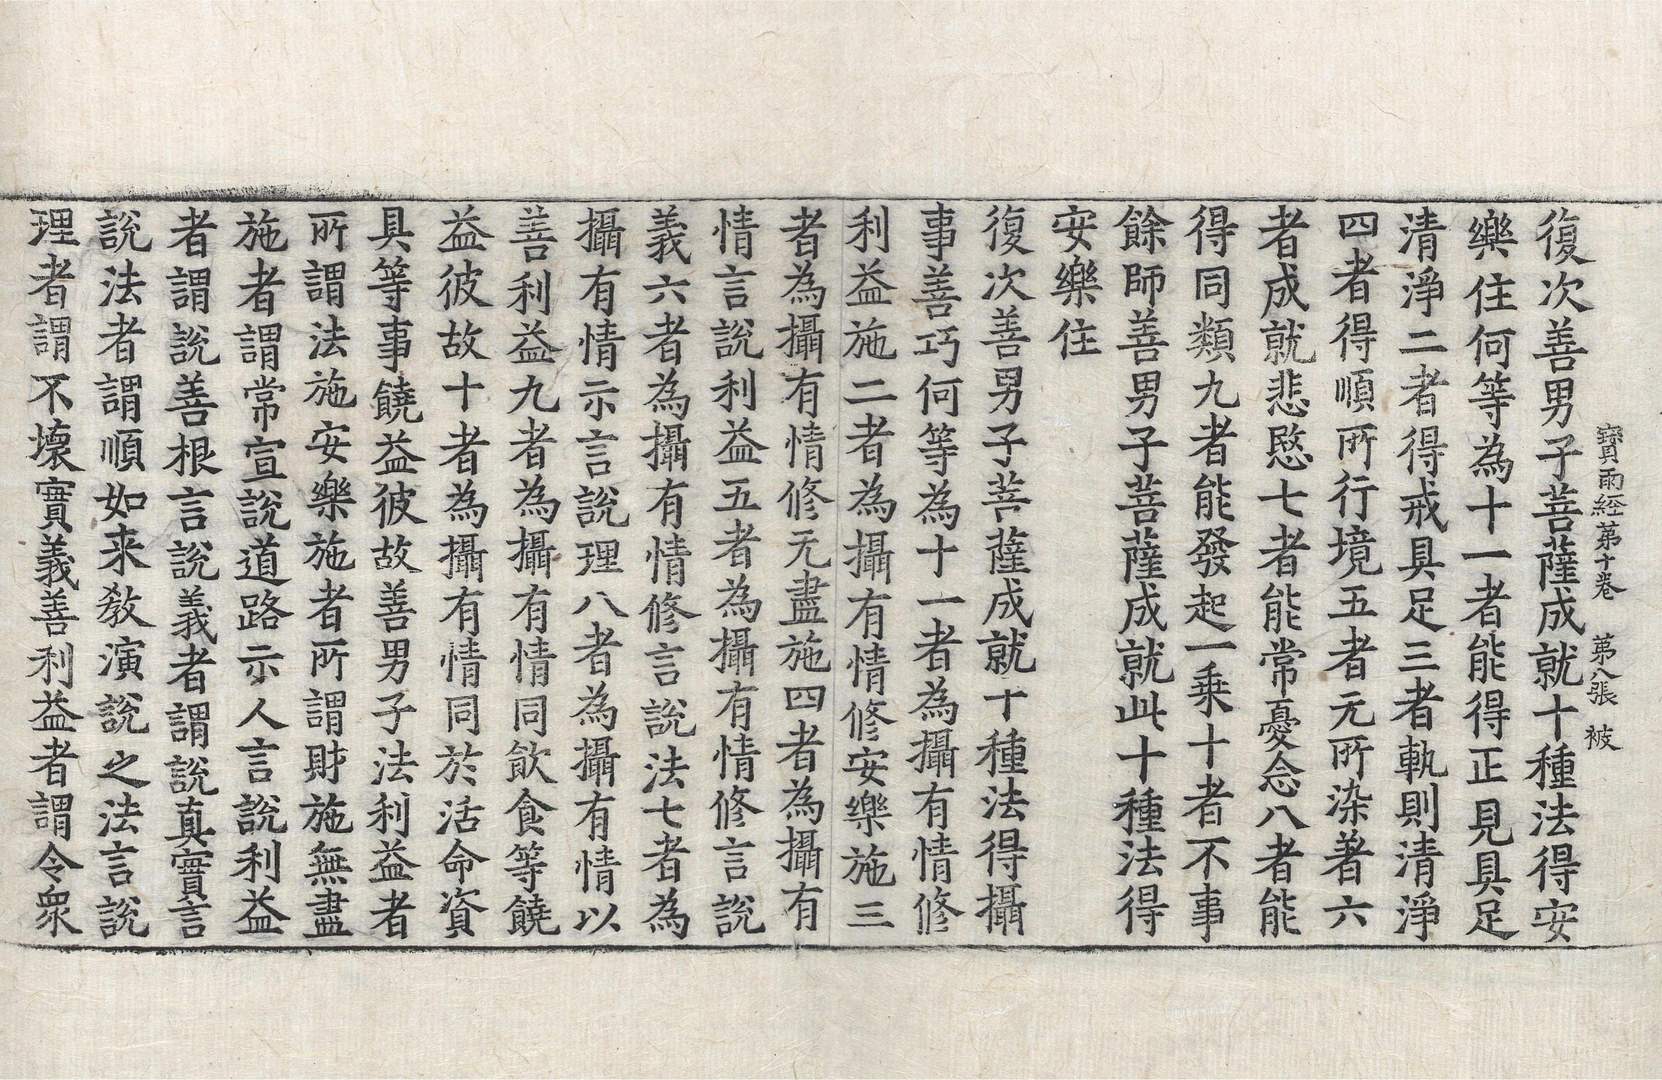 寶雨經第十卷　第八張　被
復次善男子菩薩成就十種法得安
樂住何等為十一者能得正見具足
清淨二者得戒具足三者軌則清淨
四者得順所行境五者元所染著六
者成就悲愍七者能常憂念八者能
得同類九者能發起一乗十者不事
餘師善男子菩薩成就此十種法得
安樂住
復次善男子菩薩成就十種法得攝
事善巧何等為十一者為攝有情修
利益施二者為攝有情修安樂施三
者為攝有情修元盡施四者為攝有
情言說利益五者為攝有情修言說
義六者為攝有情修言說法七者為
攝有情示言說理八者為攝有情以
善利益九者為攝有情同飲食等饒
益彼故十者為攝有情同於活命資
具等事饒益彼故善男子法利益者
所謂法施安樂施者所謂財施無盡
施者謂常宣說道路示人言說利益
者謂說善根言說義者謂說真實言
說法者謂順如来教演說之法言說
理者謂不壞實義善利益者謂令眾